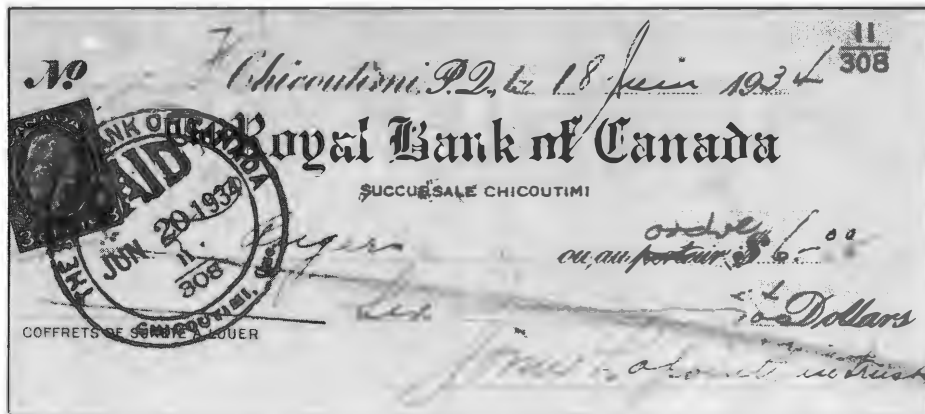 11
308
No
Chicoutimi, P.Q., le 18 Juin 1934
The Royal Bank of Canada
SUCCURSALE CHICOUTIMI
THE ROYAL BANK OF CANADA
PAID
JUN 20 1934
11.
308
CHICOUTIMI, P.Q.
ordre
ou au porteur $ 6.00
Six
Dollars
COFFRETS DE SURETE A LOUER
in trust